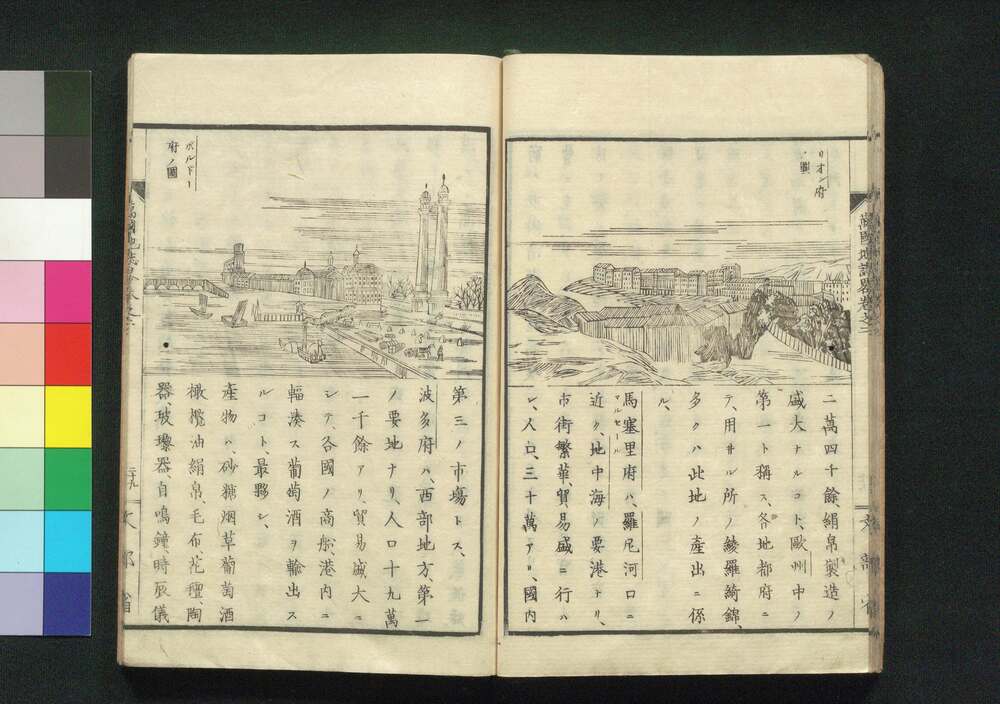 リオン府
ノ圖
二萬四千餘、絹帛製造ノ
盛大ナルコト、歐州中ノ
第一ト稱ス、各地都府ニ
テ、用井ル所ノ綾羅綺錦、
多クハ此地ノ產出ニ係
ル、
馬塞里府ハ、羅尼河口ニ
マルセール
近ク地中海ノ要港ナリ、
市街繁華、貿易盛ニ行ハ
レ、人口、三十萬アリ、國内
萬國地誌畧卷之二
文部省
ボルドー
府ノ圖
第三ノ市場トス、
波多府ハ、西部地方、第一
ノ要地ナリ、人口十九萬
一千餘アリ、貿易盛大ニ
シテ、各國ノ商船、港内ニ
輻湊ス葡萄酒ヲ輸出ス
ルコト、最夥シ、
產物ハ、砂糖烟草葡萄酒
橄欖油絹帛、毛布、花氊、陶
器、玻瓈器、自鳴鐘、時辰儀
萬國地誌畧卷之二
三十九
文部省